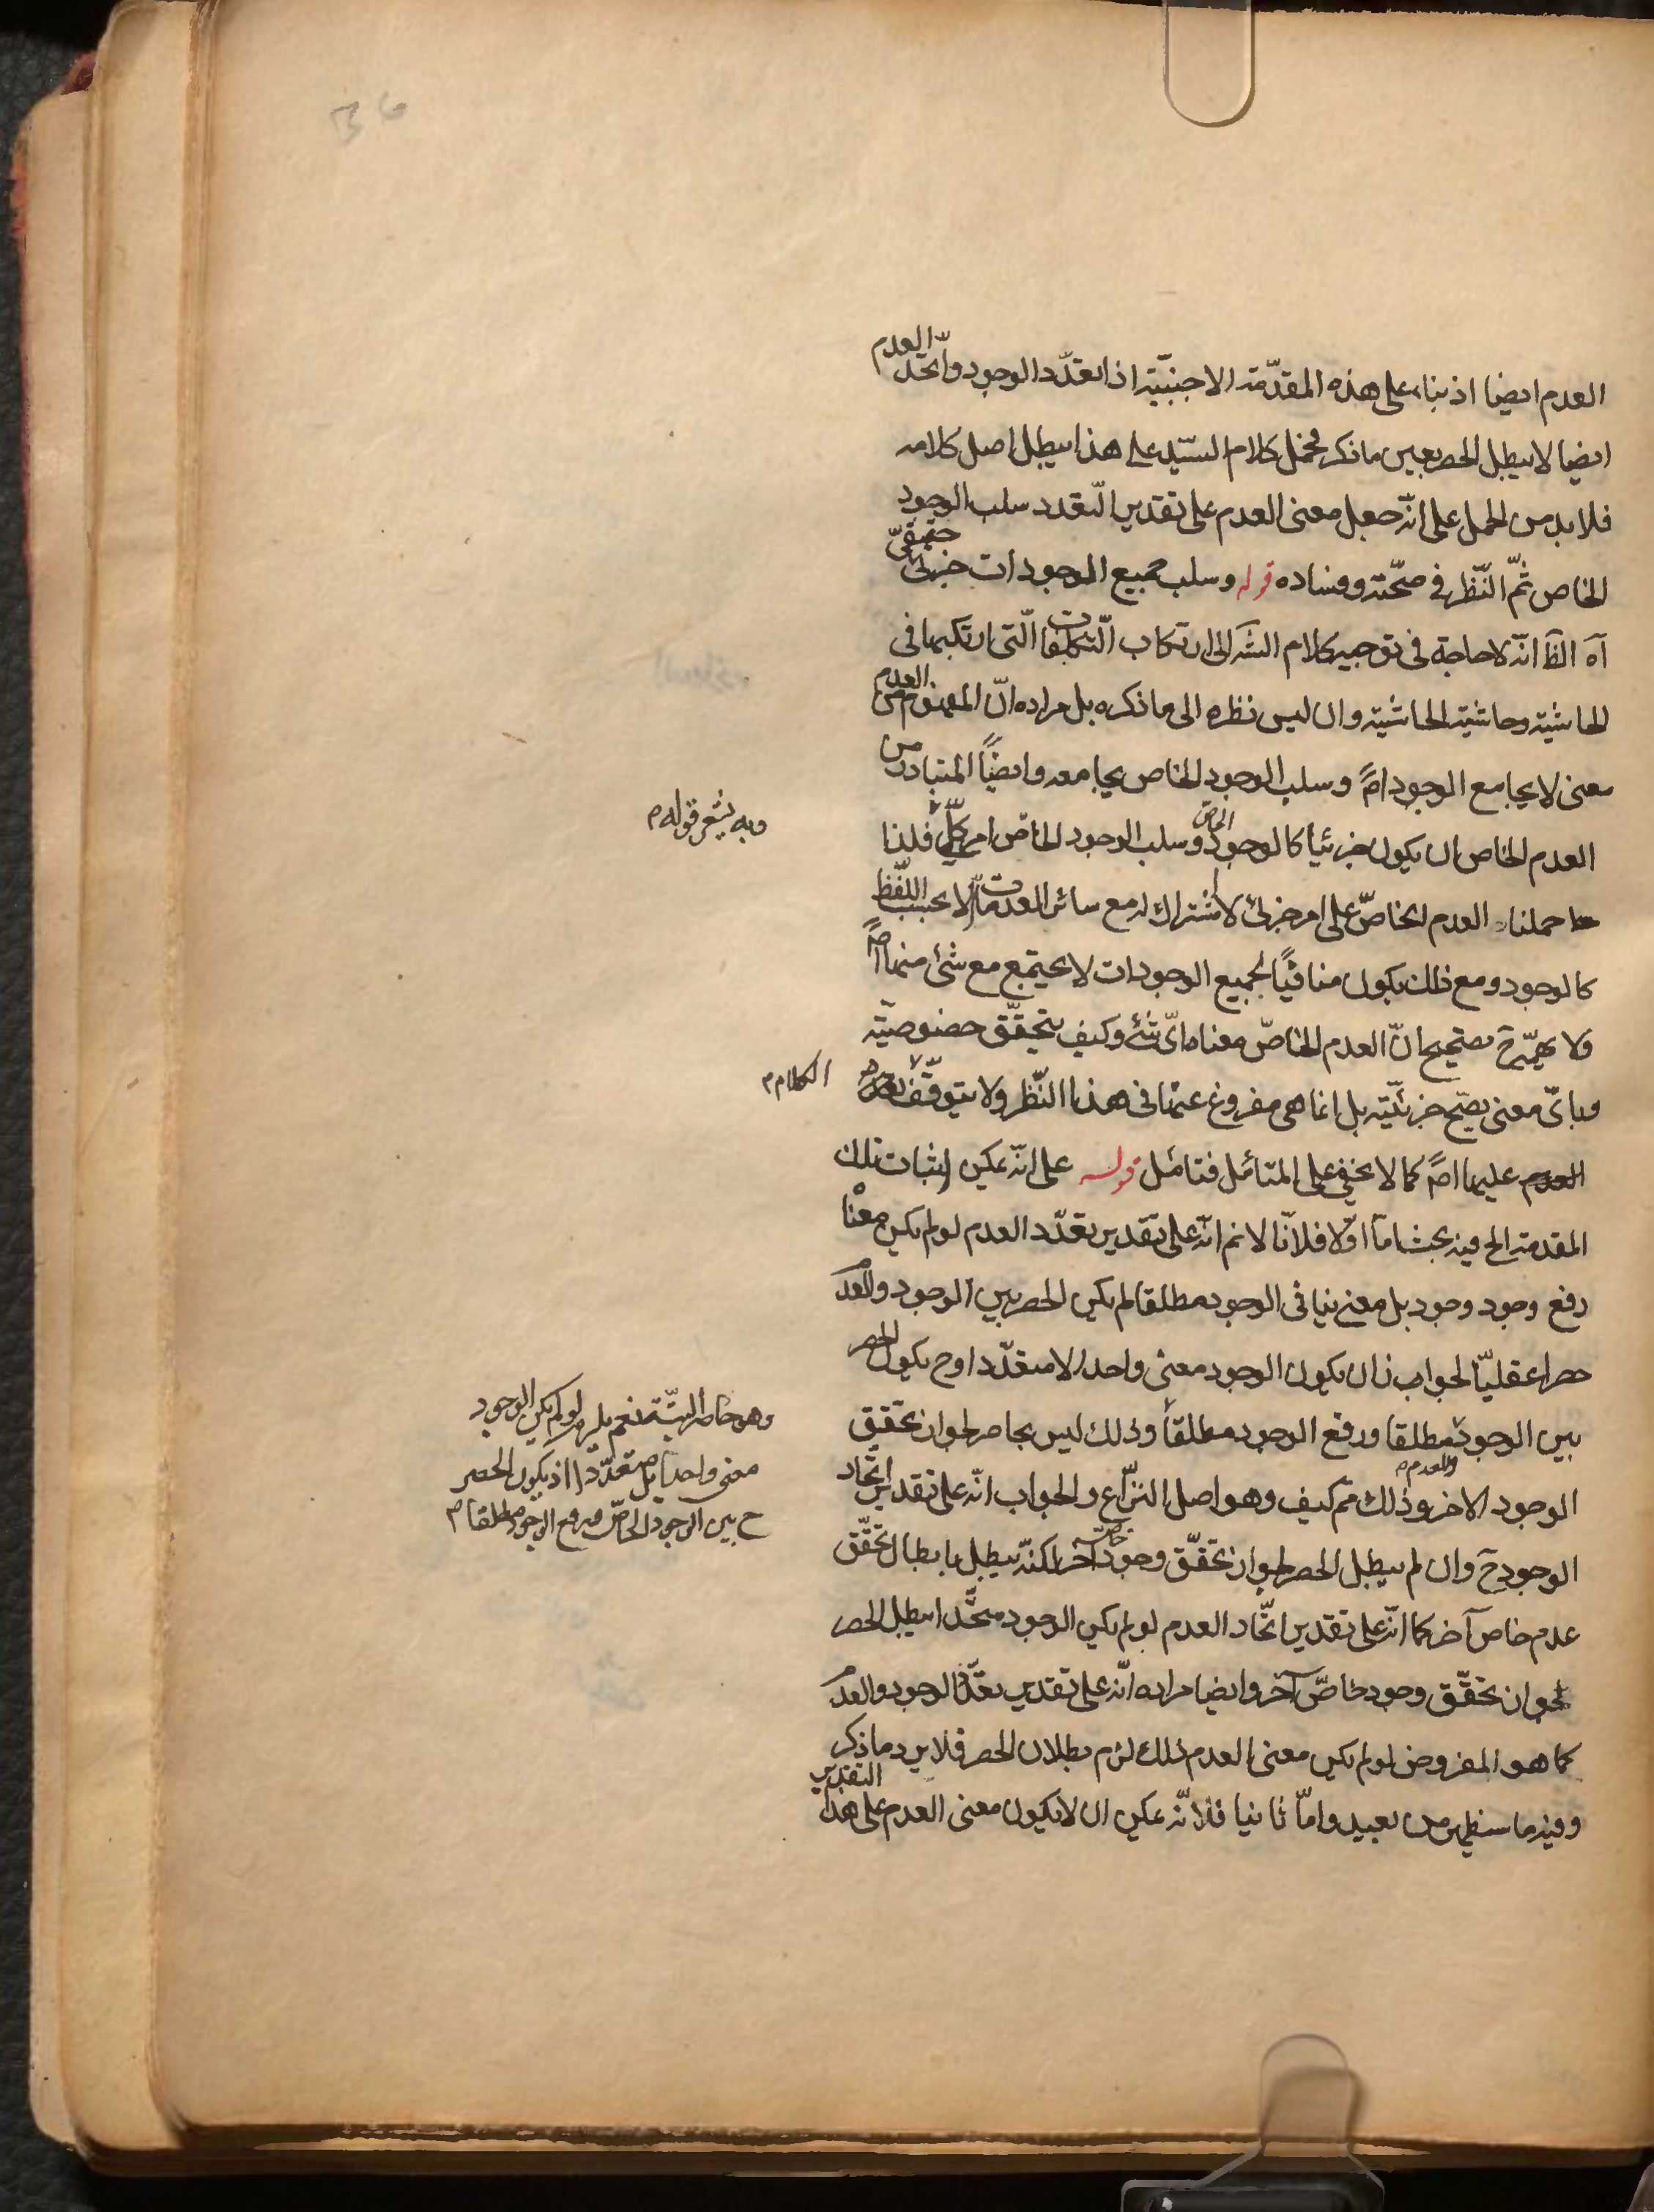 36
العدم ايضا اذ بناء على هذه المقدّمة الاجنبيّة اذا تعدّد الوجود واتّحد العدم
ايضا لا يبطل الحصر بعين ما ذكر فحمل كلام السيّد على هذا يبطل اصل كلامه
فلا بد من الحمل على انّه جعل معنى العدم على تقدير التّعدد سلب الوجود
الخاص ثمّ النّظر في صحّته وفساده قوله وسلب جميع الموجودات جزئي حقيقيّ
آه الظ انّه لا حاجة في توجيه كلام الش الى ارتكاب التّكلّفات الّتي ارتكبها في
الحاشية وحاشية الحاشية وان ليس نظره الى ما ذكره بل مراده انّ المفهوم من العدم
معنى لا يجامع الوجود اصً وسلب الوجود الخاص يجامعه وايضًا المتبادر من
العدم الخاص ان يكون جزئيا كالوجود الخاصّ وسلب الوجود الخاصّ امر كلّيّ فلذا
وبه يشعر قوله م
حملنا العدم الخاصّ على امر جزئي لا اشتراك له مع سائر العدمات الّا بحسب اللّفظ
كالوجود ومع ذلك يكون منافيًا لجميع الوجودات لا يجتمع مع شئ منها اصً
ولا يهمّ ح تصحيح انّ العدم الخاصّ معناه ايّ شئ وكيف يتحقّق خصوصيّته
وبايّ معنى يصحّ جزئيّته بل انما هي مفروغ عنها في هذا النّظر ولا يتوقّف
الكلام م
عليها اصً كما لا يخفى على المتأمّل فتامّل قوله على انّه يمكن اثبات تلك
المقدمة الخ فيه بحث امّا اوّلا فلانّا لا نم انّه على تقدير تعدّد العدم لو لم يكن معناه
رفع وجود وجود بل معنى ينافي الوجود مطلقا لم يكن الحصر بين الوجود والعدم
حصرا عقليّا لجواز ان يكون الوجود معنى واحدا لا متعدّدا وح يكون الحصر
بين الوجود مطلقا ورفع الوجود مطلقًا وذلك ليس بحاصر لجواز تحقق
وهو حاصر البتّة نعم يلزم لو لم يكن الوجود
معنى واحدا بل متعدّدا اذ يكون الحصر
ح بين الوجود الخاصّ ورفع الوجود مطلقا م
الوجود الاخر والعدم م وذلك مم كيف وهو اصل النّزاع والجواب انّه على تقدير اتّحاد
الوجود ح وان لم يبطل الحصر لجواز تحقّق وجود خاصّ آخر لكنّه يبطل بابطال تحقّق
عدم خاص آخر كما انّه على تقدير اتّحاد العدم لو لم يكن الوجود متّحدا يبطل الحصر
لجواز تحقّق وجود خاصّ آخر وايضا مراده انّه على تقدير تعدّد الوجود والعدم
كما هو المفروض لو لم يكن معنى العدم ذلك لزم بطلان الحصر فلا يرد ما ذكر
وفيه ما سيظهر من بعيد وامّا ثانيا فلانّه يمكن ان لا يكون معنى العدم على هذا التقدير